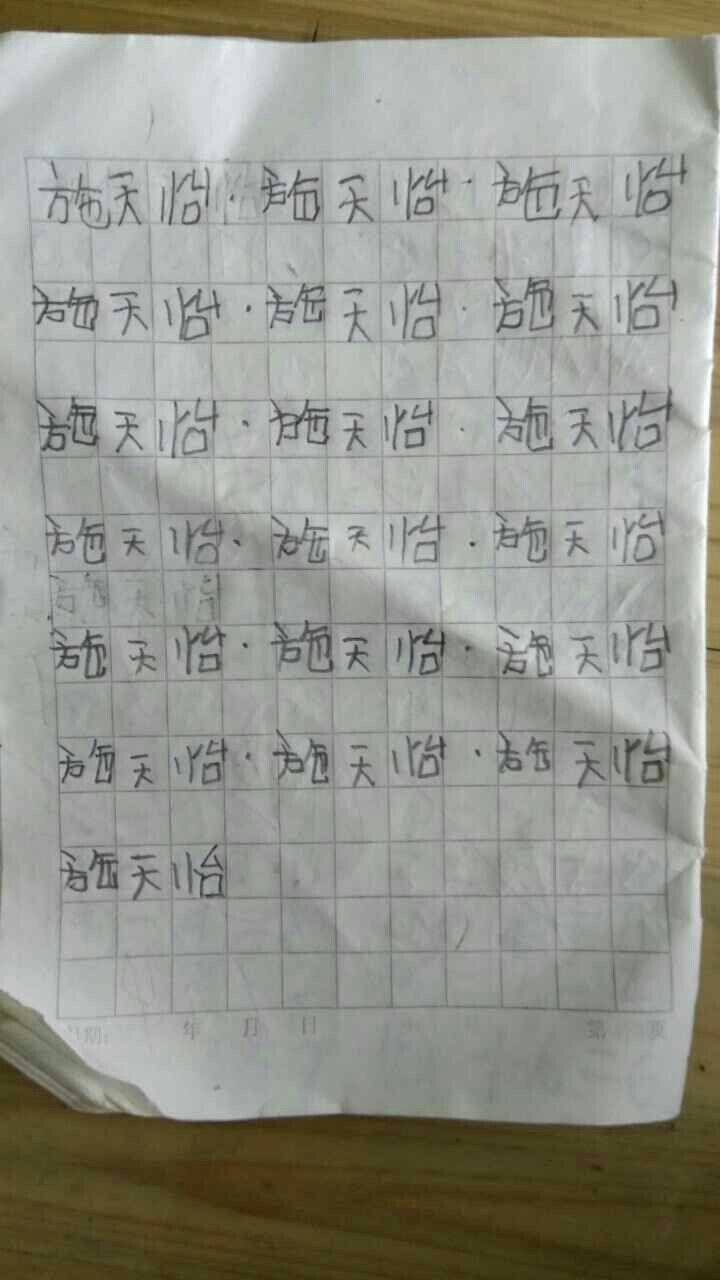 施天怡·施天怡·施天怡
施天怡·施天怡·施天怡
施天怡·施天怡·施天怡
施天怡·施天怡·施天怡
施天怡
施天怡·施天怡·施天怡
施天怡·施天怡·施天怡
施天怡
日期: 年 月 日 第 页